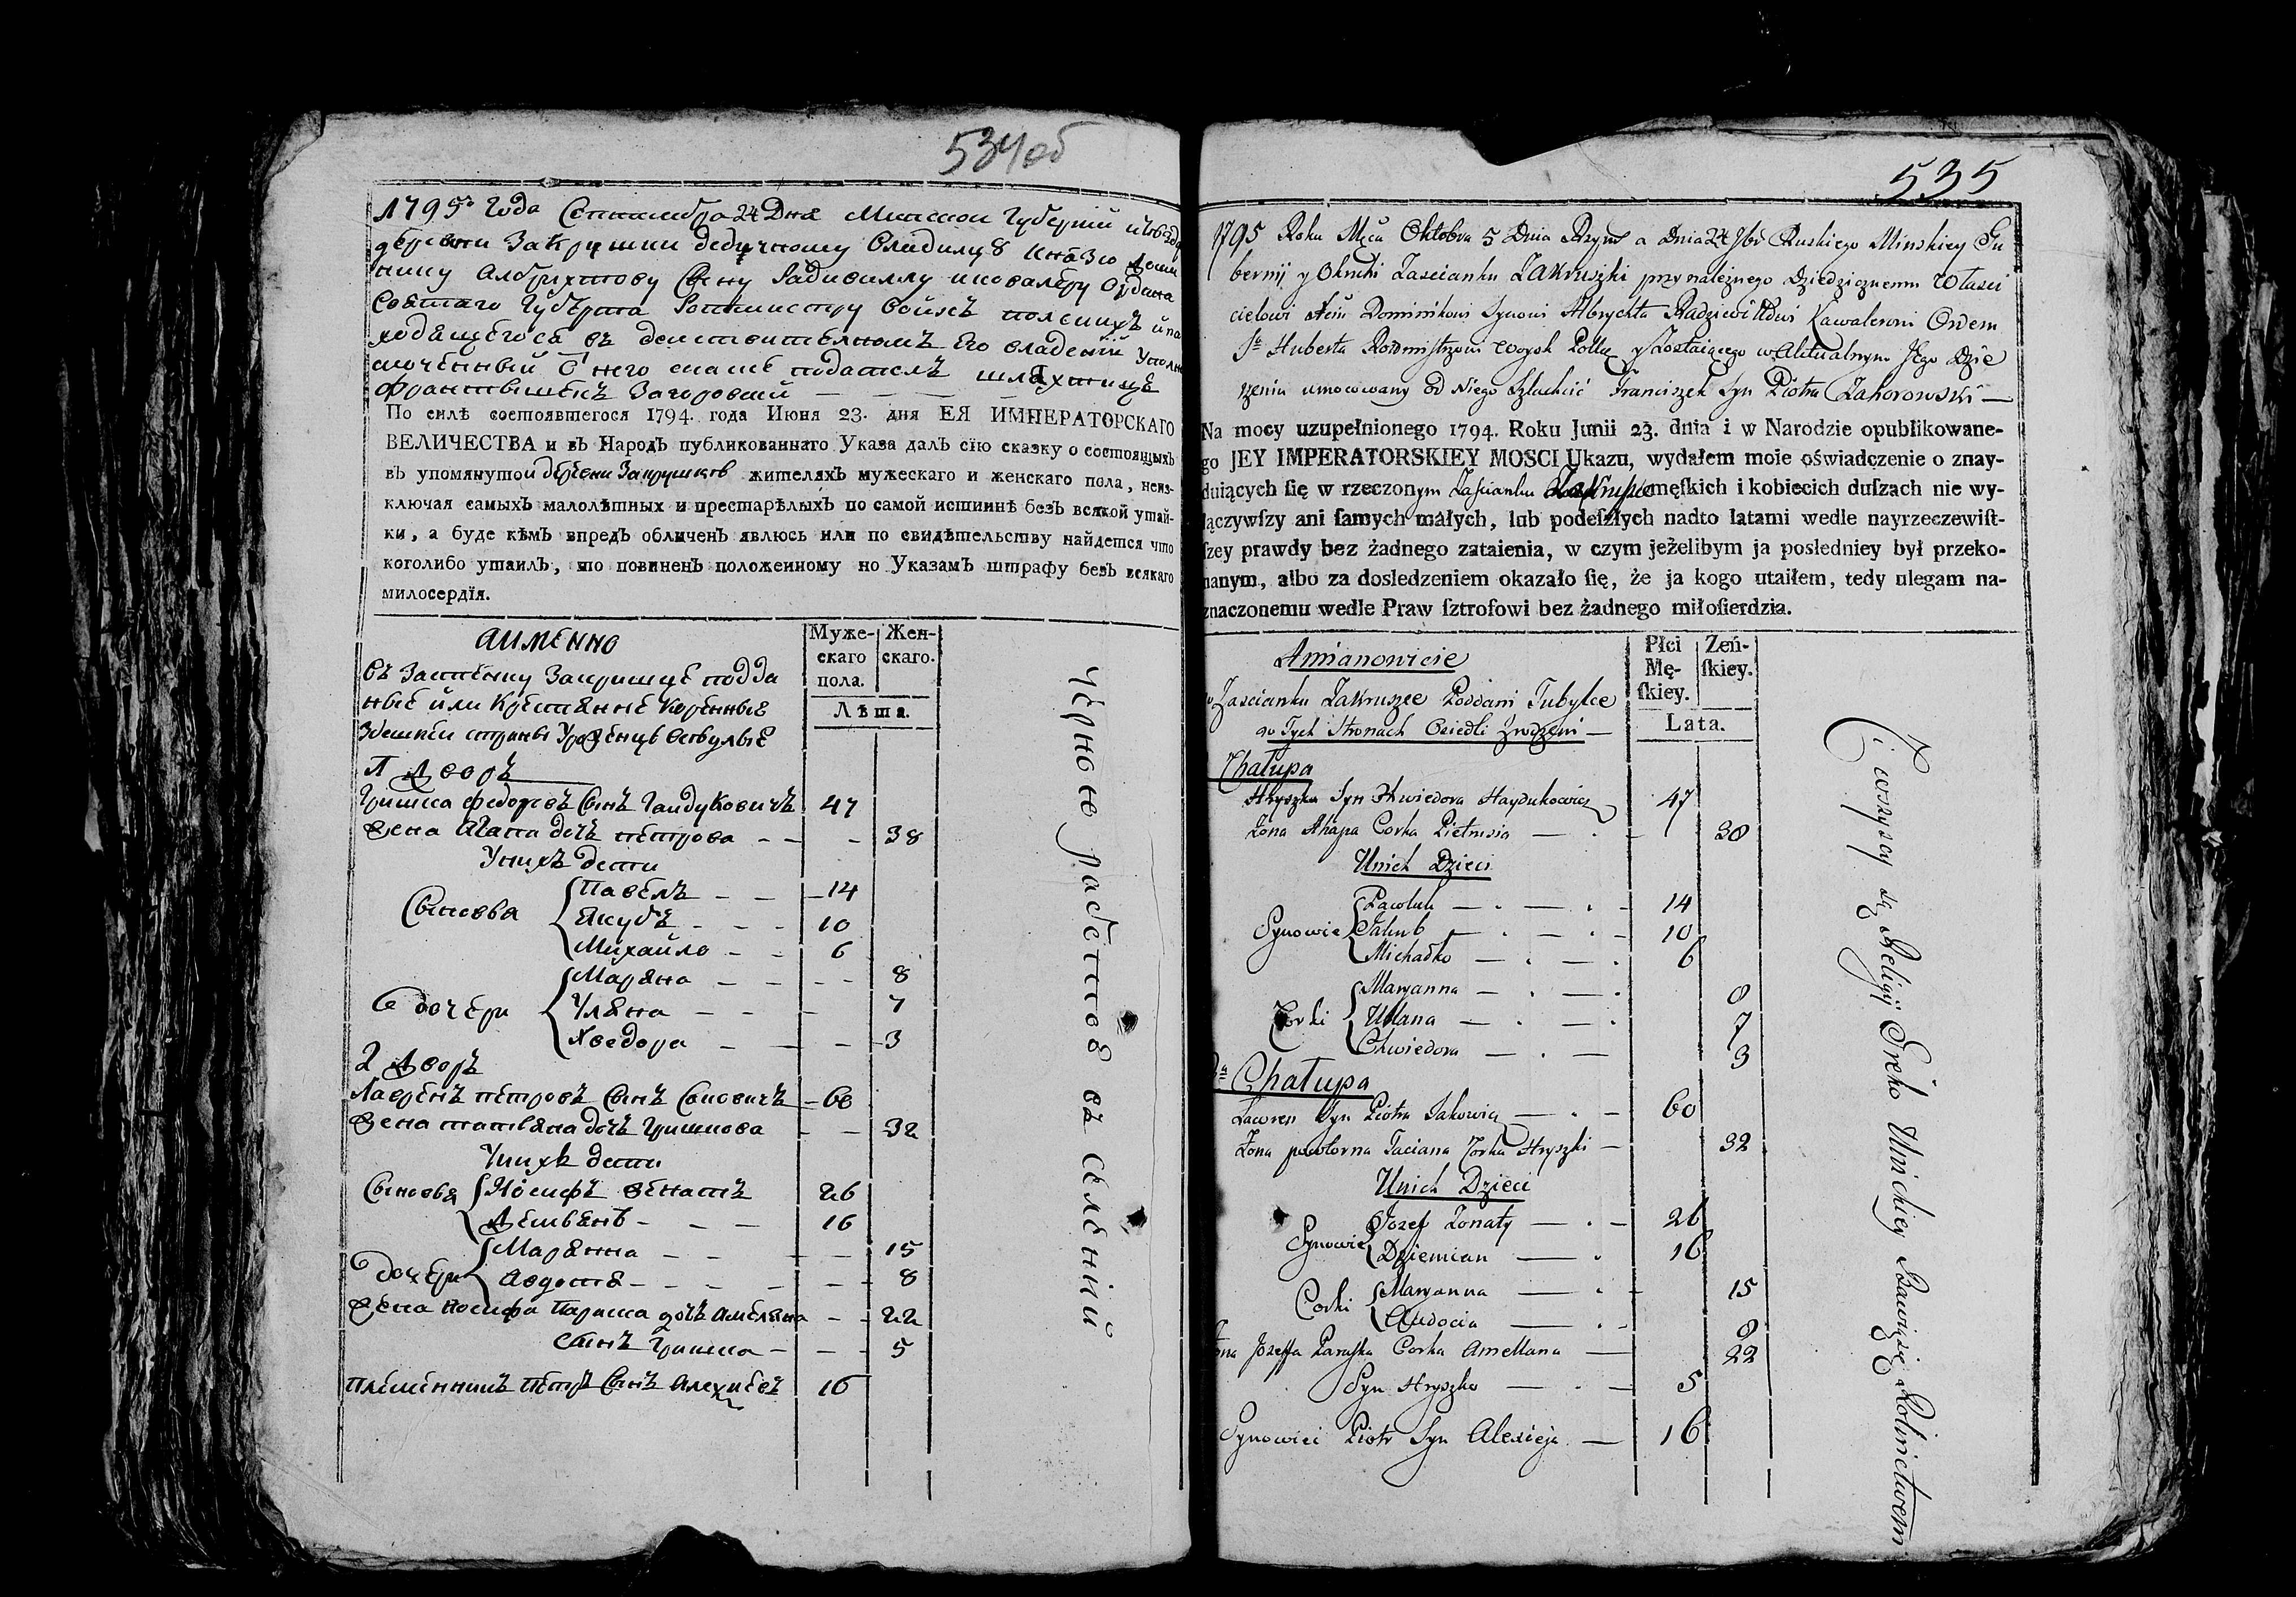 534 об
1795го Года Сентебра 24 Дня Минской Губерний
деревни Закрушки дедичному Владилцу Князю
нику Албрихтову Сыну Радивиллу и ковалеру Ордена
Святаго Губерта Ротмистру Войскъ полскихъ и на
ходящегося въ действителномъ Его владений Уполно
моченный О него шляхтице
Франтишекъ Загоровский
По силѣ состоявшегося 1794. года Июня 23. дня ЕЯ ИМПЕРАТОРСКАГО
ВЕЛИЧЕСТВА и въ Народъ публикованнаго Указа далъ сїю сказку о состоящихъ
въ упомянутой деревни Закрушков жителяхъ мужескаго и женскаго пола, неиз-
ключая самыхъ малолѣтныхъ и престарѣлыхъ по самой истиннѣ безъ всякой утай-
ки, а буде кѣмъ впредь обличенъ явлюсь или по свидѣтельству найдется что
коголибо утаилъ, то повиненъ положенному по Указамъ штрафу безъ всякаго
милосердїя.
АИМЕННО
Муже-
скаго
пола.
Жен-
скаго.
Лѣта.
Въ Застенку Закришце подда
ные или Крестянне Коренные
Здешней страны
1 Дворъ
Гришка Федоровъ Сынъ Гайдуковичъ 47
Жена Агапа дочь петрова - - - 38
Уних дети
Сыновья Павелъ - - - 14
Якубъ - - - 10
Михайло - - 6
Дочери Маряна - - - - 8
Уляна - - - 7
Хведора - - - 3
2 Дворъ
Лавренъ петровъ Сынъ 60
Жена татьяна дочь Гришкова - - 32
Уних дети
Сыновья Иосифъ женатъ 26
Демьянъ - - - 16
Дочери Марянна - - - - 15
Авдотя - - - - - 8
Жена Иосифа Парашка дочь Амеляна - - 22
Сынъ Гришка - - - 5
Племенникъ Петръ Сынъ Алексиевъ 16
Черные работков въ селений
535
1795 Roku Mca Oktobra 5 Dnia a Dnia 24 7br Ruskiego Minskiey Gu
bernij y Okruhi Zascianku Zakruszki przynaleznego Dziedzicznemu Własci
cielowi Dominikowi Synowi Albrychta Radziwiłłowi Kawalerowi Orderu
S° Huberta Rotmistrzowi Woysk Polłk y zostaiącego w Aktualnym Jego Dzie
rzeniu umocowany od Niego Szlachcić Franciszek Syn Piotra Zahorowski —
Na mocy uzupełnionego 1794. Roku Junii 23. dnia i w Narodzie opublikowane-
go JEY IMPERATORSKIEY MOSCI Ukazu, wydałem moie oświadczenie o znay-
duiących ſię w rzeczonym Zaſcianku męſkich i kobiecich duſzach nie wy-
łączywſzy ani ſamych małych, lub podeſzłych nadto latami wedle nayrzeczewiſt-
ſzey prawdy bez żadnego zataienia, w czym jeżelibym ja posledniey był przeko-
nanym, albo za dosledzeniem okazało ſię, że ja kogo utaiłem, tedy ulegam na-
znaczonemu wedle Praw ſztrofowi bez żadnego miłoſierdzia.
Amianowicie
Płci
Mę-
ſkiey.
Zeń-
ſkiey.
Lata.
w Zascianku Zakruszce Poddani Tubylce
w Tych Stronach Osiedli Zrodzeni —
Chałupa
Hryszka Syn Chwiedora Haydukowicz 47
Zona Ahapa Corka Pietrusia — . - 38
Unich Dzieci
Synowie Pawluk — . — . - 14
Jakub — . — . - 10
Michałko — . — . 6
Corki Maryanna — . — . 8
Ullana — . — . 7
Chwiedora — . — 3
2a Chałupa
Lawren Syn Piotra Sakowicz — . - 60
Zona powtorna Taciana Corka Hryszki — 32
Unich Dzieci
Synowie Jozef Zonaty — . - 26
Dziemian — . 16
Corki Maryanna — . - 15
Audocia — . - 8
Zona Jozeffa Paraſka Corka Amellana — 22
Syn Hryszko — . - 5
Synowiec Piotr Syn Alexieja — 16
Ci wszyscy są Religij Greko Unickiey Bawią się Rolnictwem